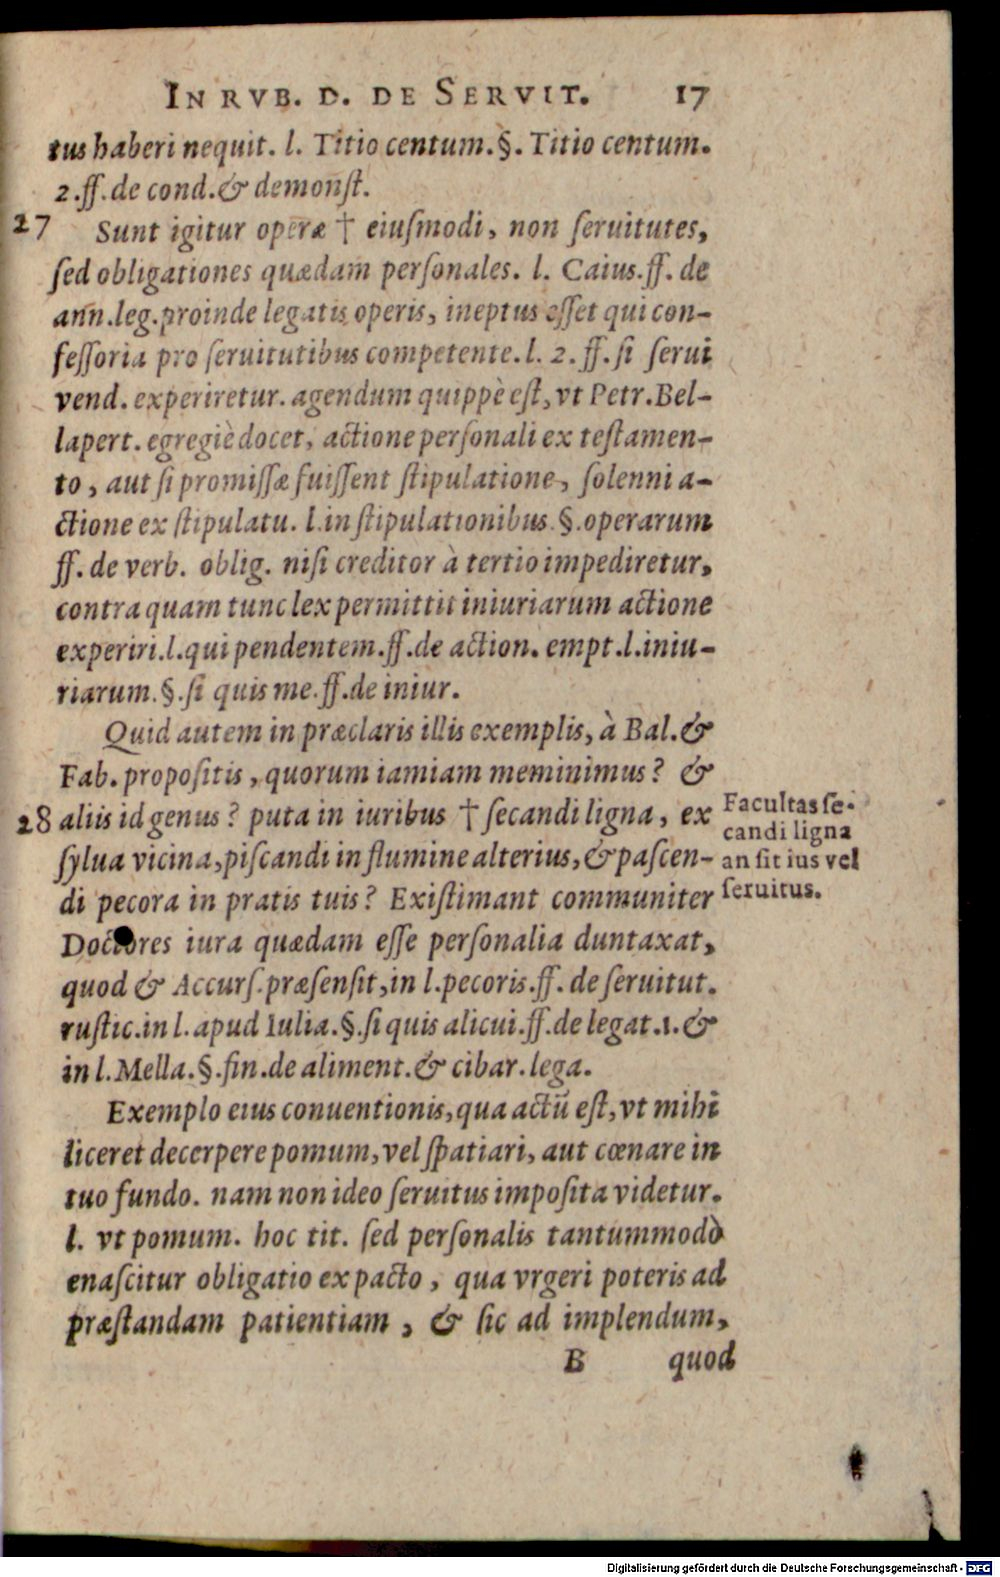 IN RVB. D. DE SERVIT. 17
tus haberi nequit. l. Titio centum. §. Titio centum.
2. ff. de cond. & demonſt.
27 Sunt igitur operæ † eiuſmodi, non ſeruitutes,
ſed obligationes quædam perſonales. l. Caius. ff. de
ann. leg. proinde legatis operis, ineptus eſſet qui con-
feſſoria pro ſeruitutibus competente. l. 2. ff. ſi ſerui
vend. experiretur. agendum quippè eſt, vt Petr. Bel-
lapert. egregiè docet, actione perſonali ex teſtamen-
to, aut ſi promiſſæ fuiſſent ſtipulatione, ſolenni a-
ctione ex ſtipulatu. l. in ſtipulationibus §. operarum
ff. de verb. oblig. niſi creditor à tertio impediretur,
contra quam tunc lex permittit iniuriarum actione
experiri. l. qui pendentem. ff. de action. empt. l. iniu-
riarum. §. ſi quis me. ff. de iniur.
Quid autem in præclaris illis exemplis, à Bal. &
Fab. propoſitis, quorum iamiam meminimus? &
28 aliis id genus? puta in iuribus † ſecandi ligna, ex
ſylua vicina, piſcandi in flumine alterius, & paſcen-
di pecora in pratis tuis? Exiſtimant communiter
Doctores iura quædam eſſe perſonalia duntaxat,
quod & Accurſ. præſenſit, in l. pecoris. ff. de ſeruitut.
ruſtic. in l. apud Iulia. §. ſi quis alicui. ff. de legat. 1. &
in l. Mella. §. fin. de aliment. & cibar. lega.
Facultas ſe-
candi ligna
an ſit ius vel
ſeruitus.
Exemplo eius conuentionis, qua actū eſt, vt mihi
liceret decerpere pomum, vel ſpatiari, aut cœnare in
tuo fundo. nam non ideo ſeruitus impoſita videtur.
l. vt pomum. hoc tit. ſed perſonalis tantummodò
enaſcitur obligatio ex pacto, qua vrgeri poteris ad
præſtandam patientiam, & ſic ad implendum,
B quod
Digitalisierung gefördert durch die Deutsche Forschungsgemeinschaft - DFG